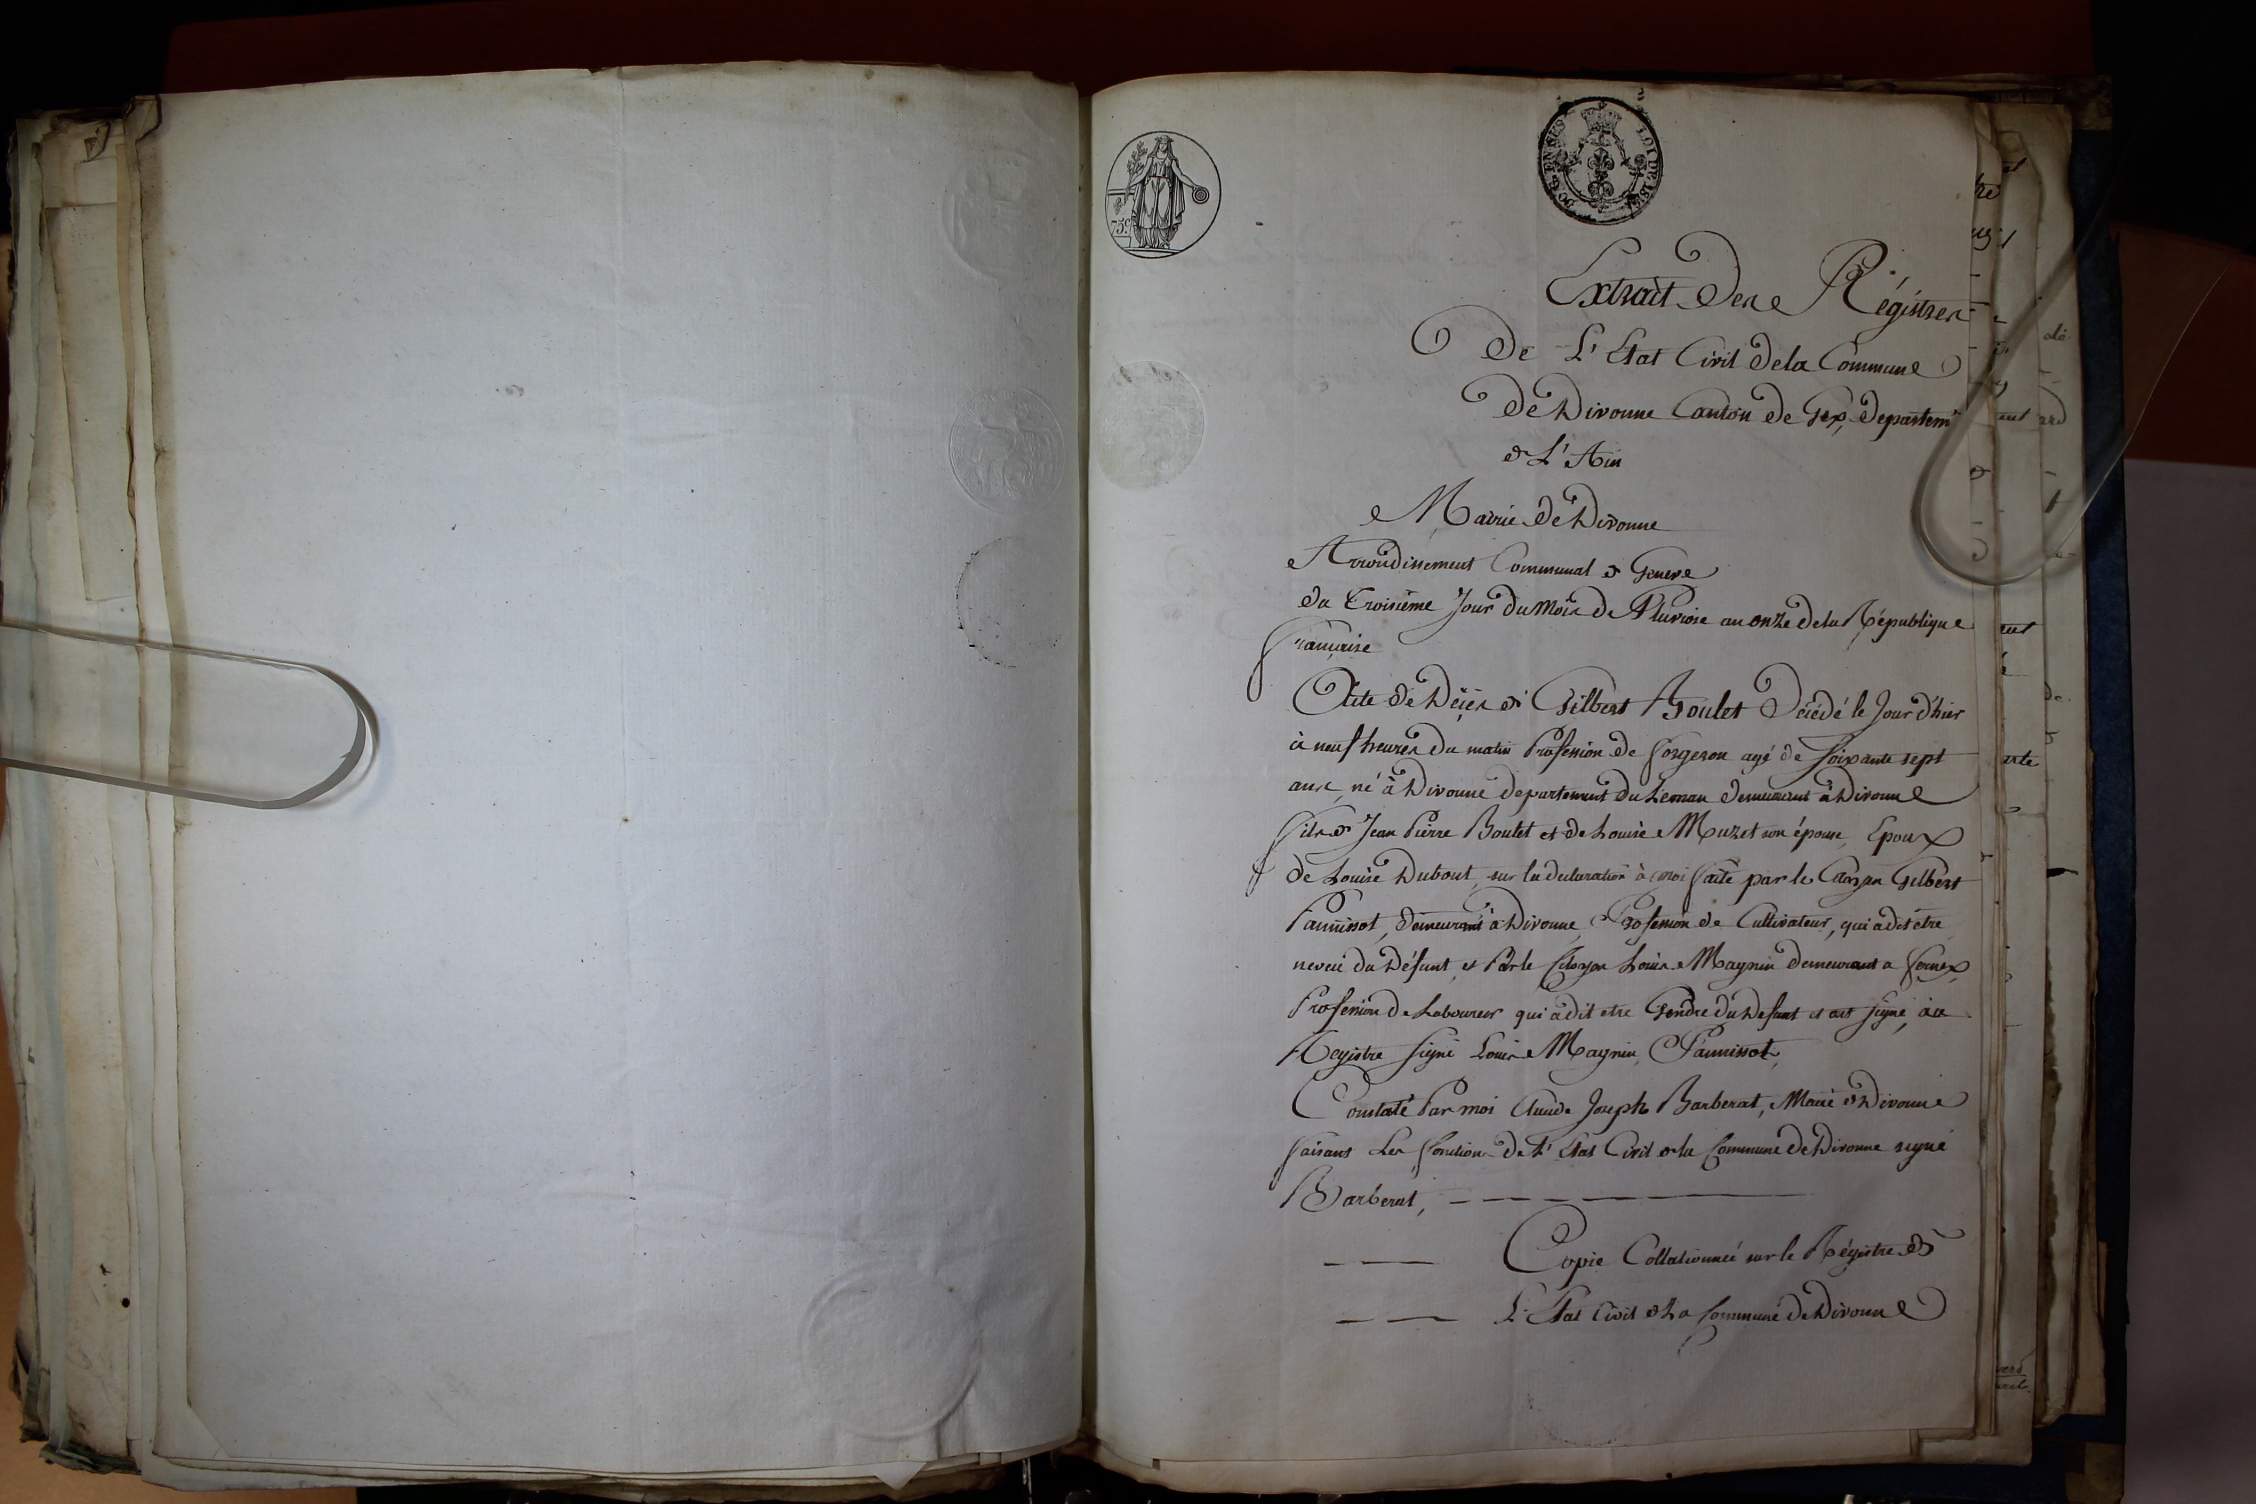 75c
DO. & EN SUS LOI DE 1816
Extrait Des Régistres
De L'Etat Civil De la Commune
De Divonne Canton de Gex, Departemt
de L'Ain
Mairie De Divonne
Arrondissement Communal de Geneve
du Troisième Jour du Mois De Pluviose an onze de la République
française
Acte De Décès de Gilbert Boulet Décédé le Jour d'hier
à neuf heures du matin Profession de forgeron agé de soixante sept
ans, né à Divonne departement du Leman demeurant à Divonne
fils de Jean Pierre Boulet et de Louise Muzet son épouse, Epoux
de Louise Dubout, sur la declaration à moi faite par le Citoyen Gilbert
Pannissot, demeurant à Divonne, Profession de Cultivateur, qui a dit être
neveu du Défunt, et Par le Citoyen Louis Magnin demeurant a fernex
Profession de Laboureur qui a dit etre Gendre du Defunt et ont signé, au
Registre signé Louis Magnin, Pannissot,
Constaté Par moi Claude Joseph Barberat, Maire de Divonne
faisant Les fonction De L'Etat Civil de la Commune De Divonne signé
Barberat,
Copie Collationneé sur le Régistre de
L'Etat Civil de La Commune De Divonne